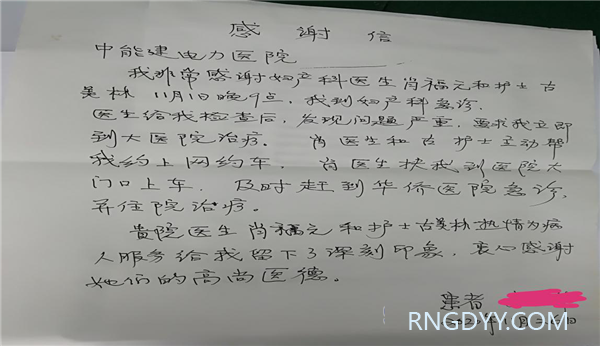 感谢信
中能建电力医院
我非常感谢妇产科医生肖福元和护士古
吴林 11月1日晚9点，我到妇产科急诊.
医生给我检查后，发现问题严重，要求我立即
到大医院治疗. 肖医生和古护士主动帮
我约上网约车. 肖医生扶我到医院大
门口上车. 及时赶到华侨医院急诊.
并住院治疗。
贵院医生肖福元和护士古美林热情为病
人服务给我留下了深刻印象，衷心感谢
她们的高尚医德。
患者
RNGDYY.COM